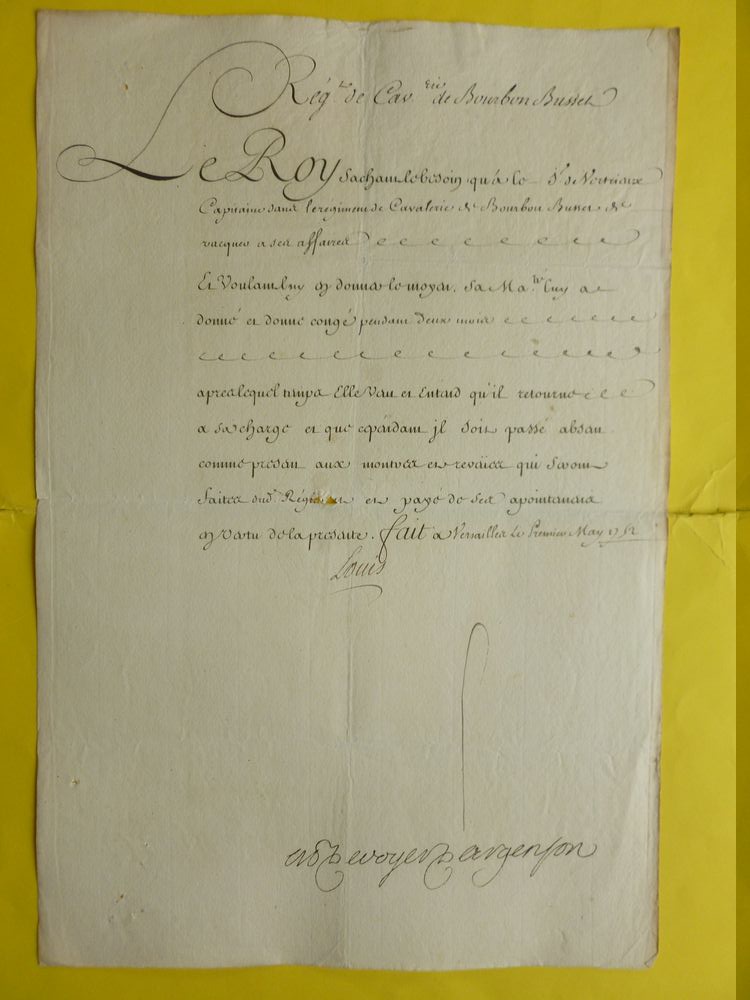 Reg.t de Cav.rie de Bourbon Busset
Le Roy Sachant le besoin qu'a le S.r de
Capitaine dans le regiment de Cavalerie de Bourbon Busset de
vacquer a ses affaires
Et Voulant luy en donner le moyen, Sa Ma.té luy a
donné et donne congé pendant deux mois
apres lequel temps Elle Veut et Entend qu'il retourne
a sa charge et que cependant jl soit passé absent
comme present aux montres et revües qui seront
faites dud. Régiment et payé de ses apointemens
en vertu de la presente. fait a Versailles Le Premier May 1752
Louis
de voyer d'argenson